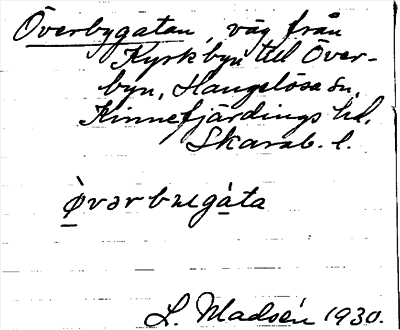 Överbygatan, väg från
Kyrkbyn till Över-
byn, Hangelösa sn,
Kinnefjärdings hd,
Skarab. l.
Ǿvərbyga̠ta
L. Madsén 1930.